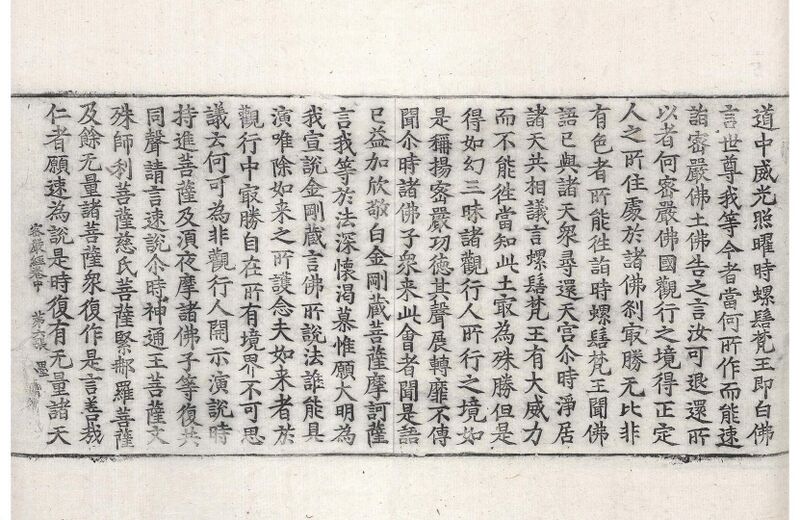 道中威光照曜時螺髻梵王即白佛
言世尊我等今者當何所作而能速
詣密嚴佛土佛告之言汝可退還所
以者何密嚴佛國觀行之境得正定
人之所住處於諸佛刹冣勝无比非
有色者所能徃詣時螺髻梵王聞佛
語已與諸天衆尋還天宫尒時淨居
諸天共相議言螺髻梵王有大威力
而不能徃當知此土冣為殊勝但是
得如幻三昧諸觀行人所行之境如
是稱揚密嚴功德其聲展轉靡不傳
聞尒時諸佛子衆来此會者聞是語
已益加欣敬白金剛藏菩薩摩訶薩
言我等於法深懷渴慕惟願大明為
我宣說金剛藏言佛所說法誰能具
演唯除如来之所護念夫如来者於
觀行中冣勝自在所有境界不可思
議云何可為非觀行人開示演說時
持進菩薩及須夜摩諸佛子等復共
同聲請言速說尒時神通王菩薩文
殊師利菩薩慈氏菩薩緊那羅菩薩
及餘无量諸菩薩衆復作是言善哉
仁者願速為說是時復有无量諸天
密嚴經卷中 第 張 墨